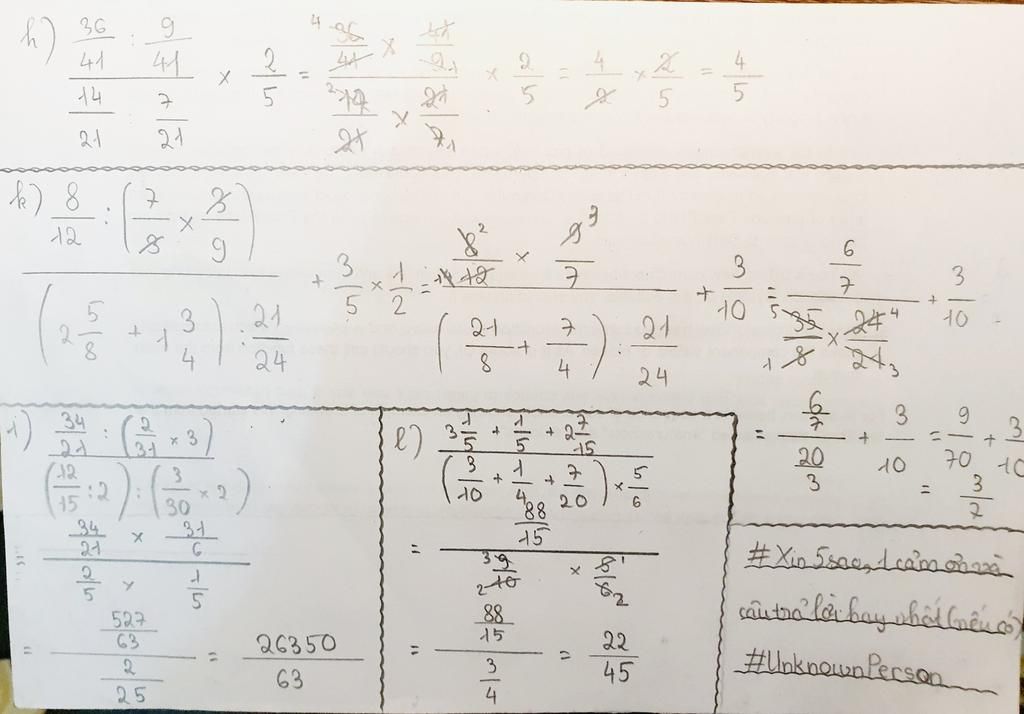 h) (36/41 : 9/41)/(14/21 : 7/21) × 2/5 = (36/41 × 41/9)/(14/21 × 21/7) × 2/5 = 4/2 × 2/5 = 4/5
k) (8/12 : (7/8 × 8/9))/((2 5/8 + 1 3/4) : 21/24) + 3/5 × 1/2 = (8/12 × 9/7)/((21/8 + 7/4) : 21/24) + 3/10 = (6/7)/(35/8 × 24/21) + 3/10
= (6/7)/(20/3) + 3/10 = 9/70 + 3/10
= 3/7
i) (34/21 : (2/31 × 3))/((12/15 : 2) : (3/30 × 2))
= (34/21 × 31/6)/(2/5 × 1/5)
= (527/63)/(2/25) = 26350/63
l) (3 1/5 + 1/5 + 2 7/15)/((3/10 + 1/4 + 7/20) × 5/6)
= (88/15)/(9/10 × 5/6)
= (88/15)/(3/4) = 22/45
#Xin 5 sao, 1 cảm ơn và
câu trả lời hay nhất (nếu có)
#UnknownPerson